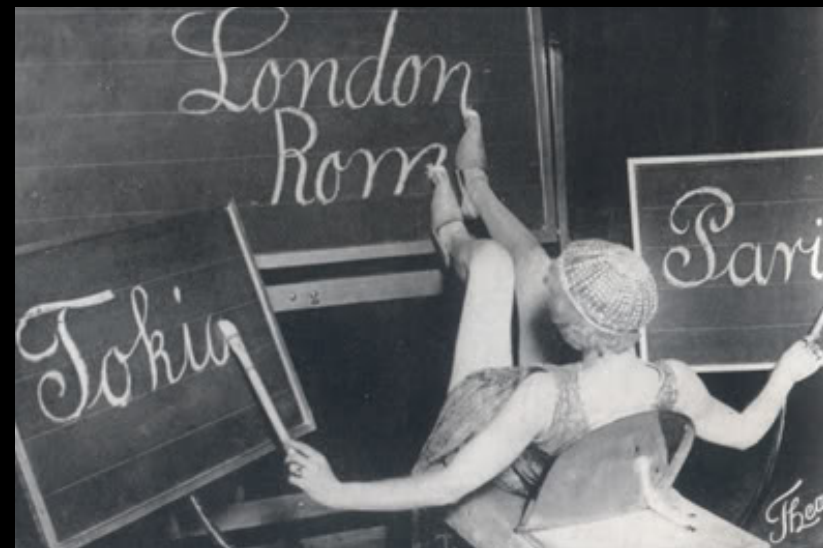 London
Rom
Tokiu
Pari
Thea